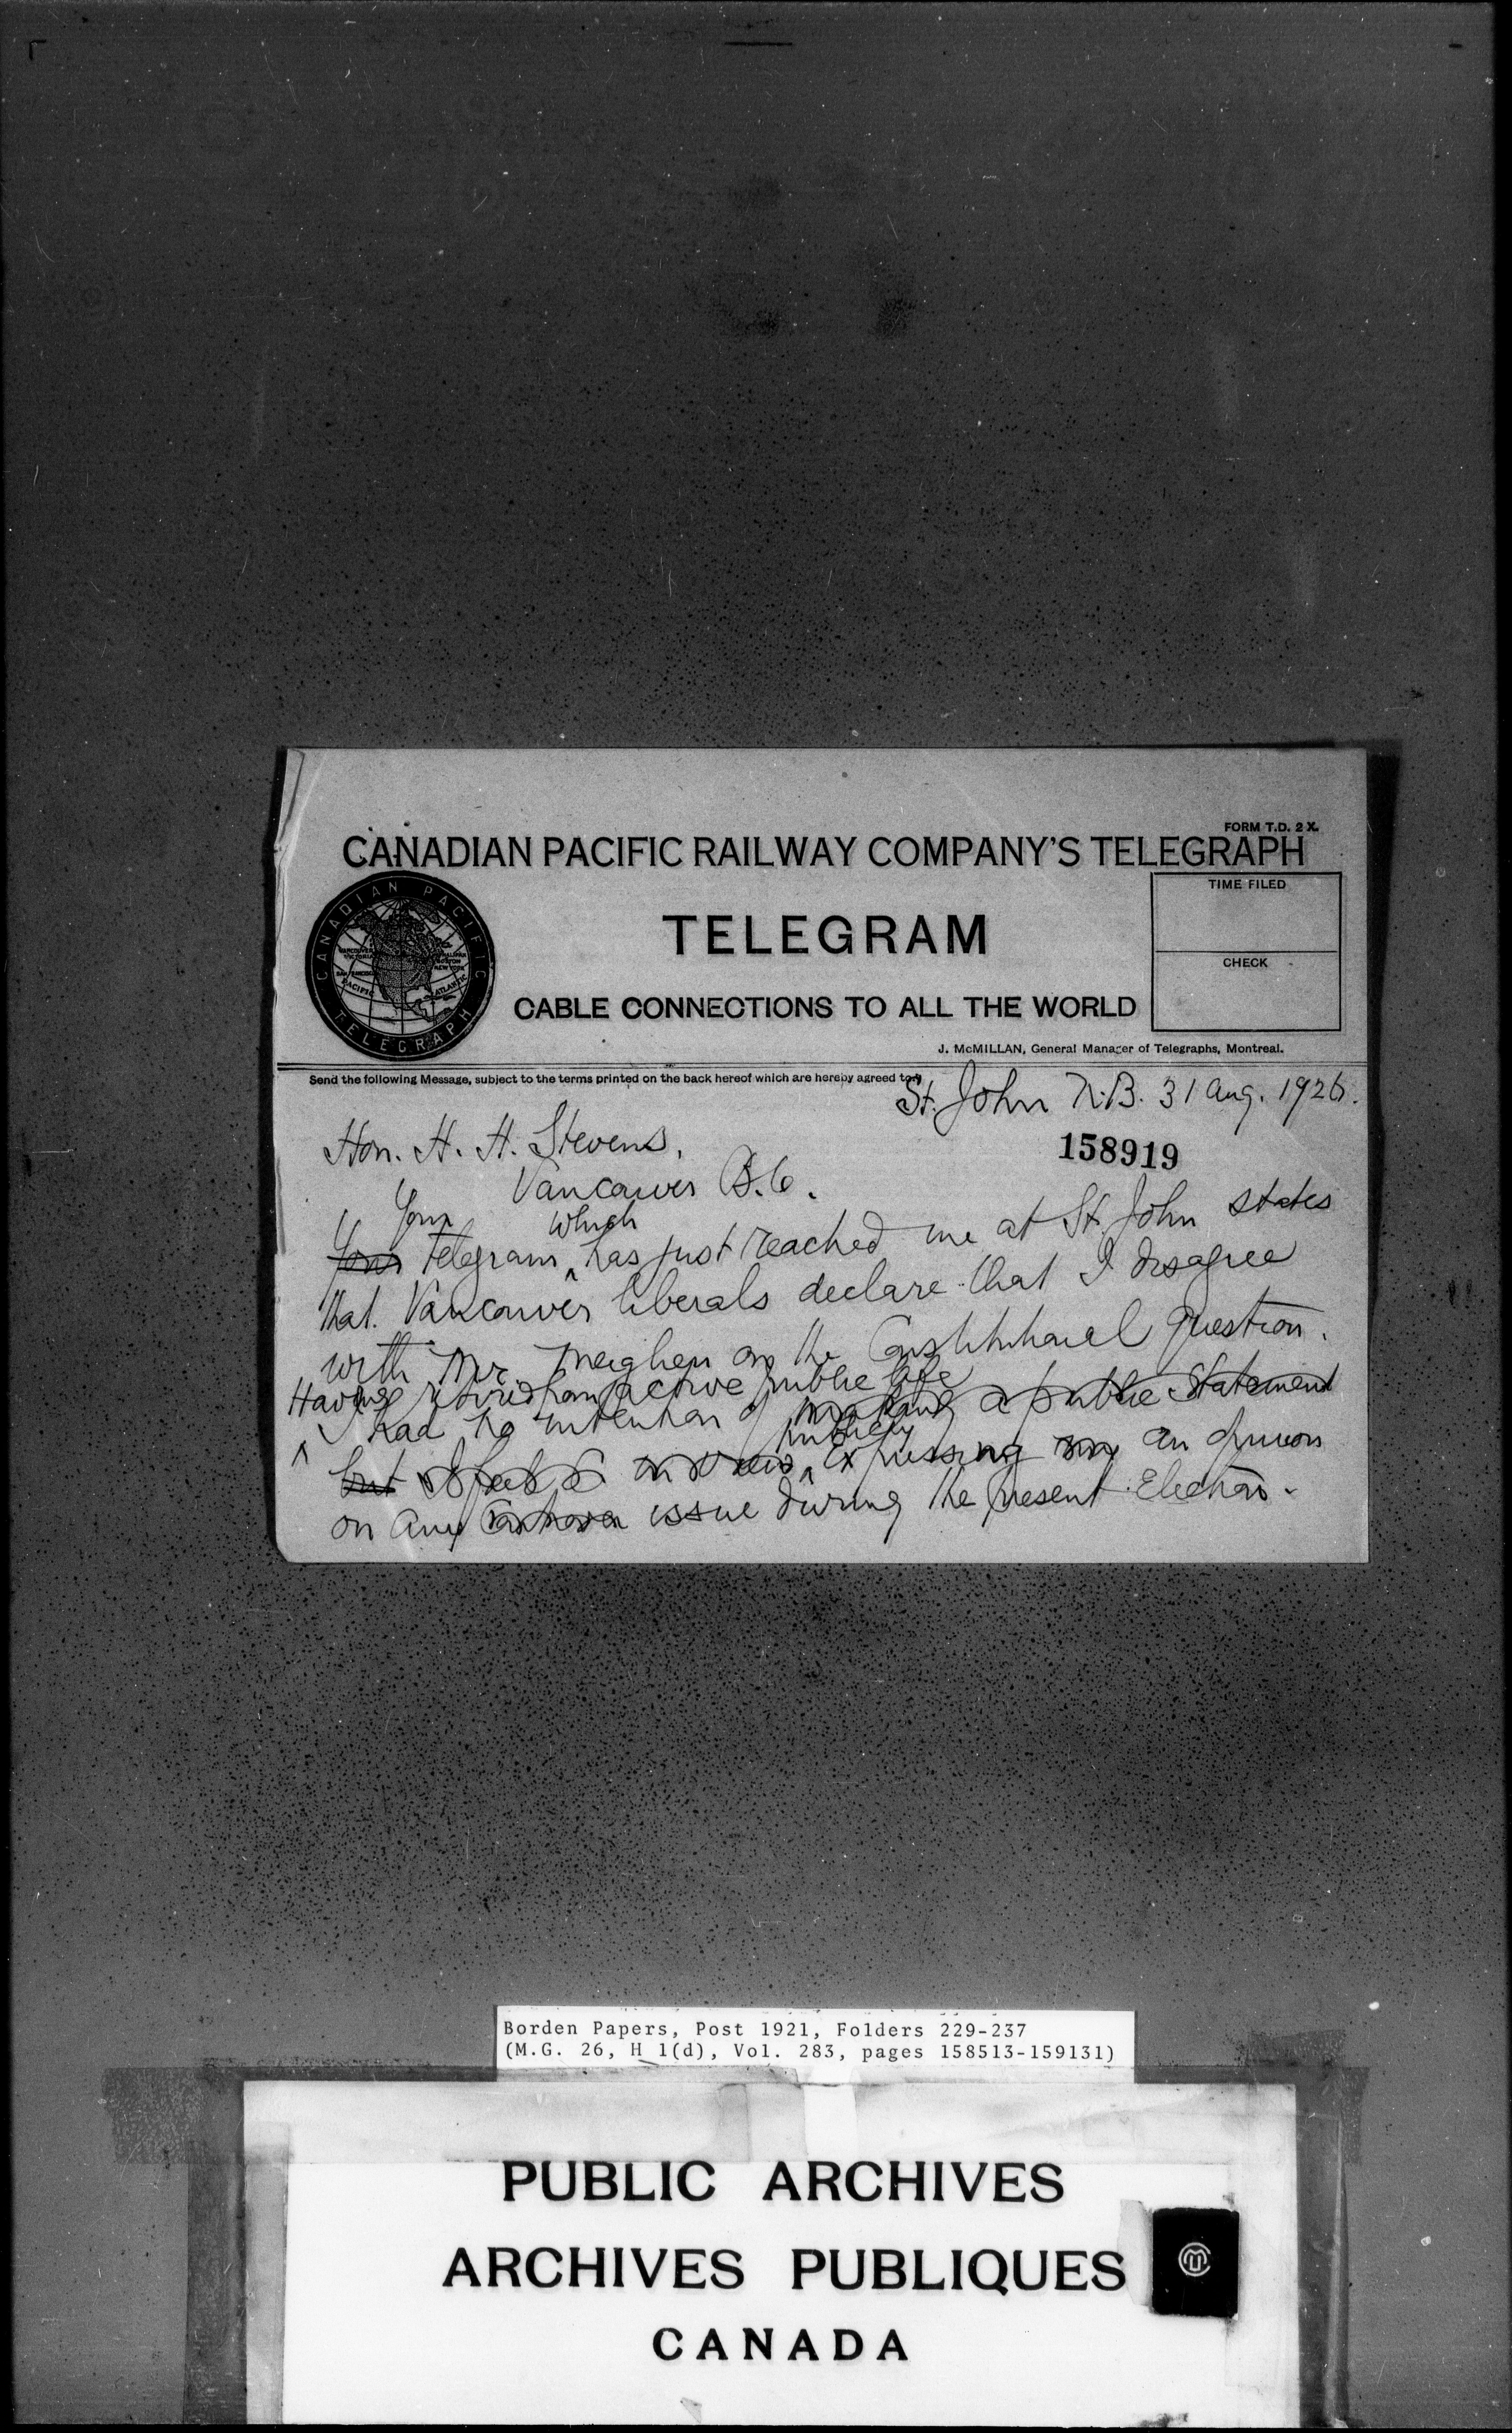 FORM T.D. 2 X.
CANADIAN PACIFIC RAILWAY COMPANY'S TELEGRAPH
TIME FILED
CANADIAN PACIFIC
TELEGRAPH
TELEGRAM
CHECK
CABLE CONNECTIONS TO ALL THE WORLD
J. McMILLAN, General Manager of Telegraphs, Montreal.
Send the following Message, subject to the terms printed on the back hereof which are hereby agreed to.
St. John N.B. 31 Aug. 1926.
158919
Hon. H. H. Stevens,
Vancouver B.C.
Your which
Your Telegram has just reached me at St. John states
that Vancouver liberals declare that I disagree
with Mr. Meighen on the Constitutional question.
Having retired from active public life
I had no intention of making a public statement
publicly
but expressing my an opinion
on any issue during the present Election.
Borden Papers, Post 1921, Folders 229-237
(M.G. 26, H 1(d), Vol. 283, pages 158513-159131)
PUBLIC ARCHIVES
ARCHIVES PUBLIQUES
CANADA